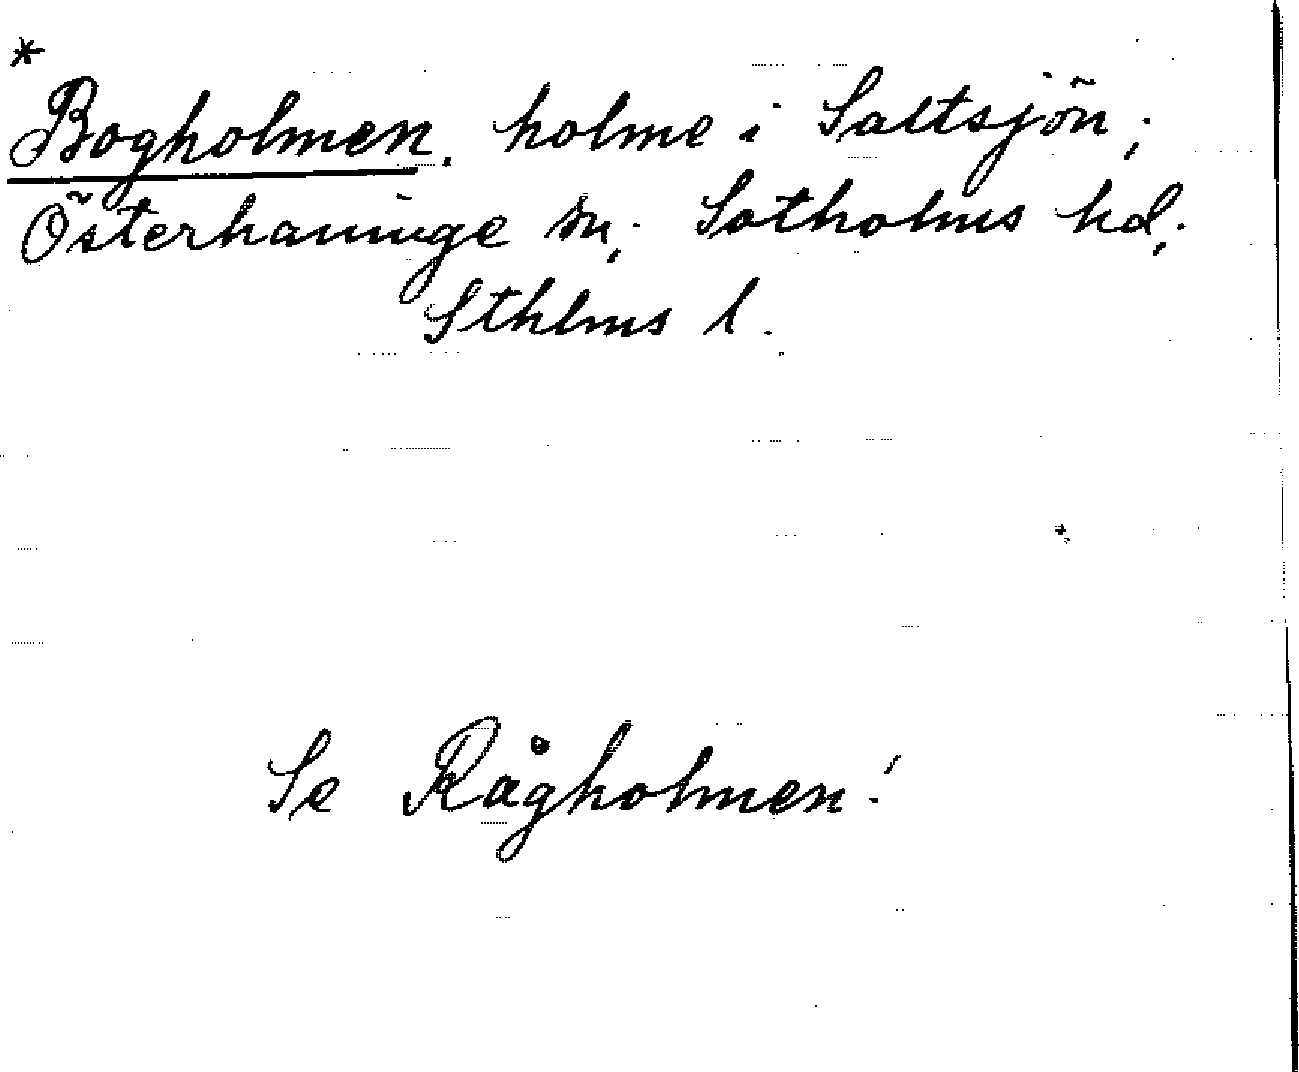 *
Bogholmen, holme i Saltsjön;
Österhaninge sn; Sotholms hd;
Sthlms l.
Se Rågholmen!